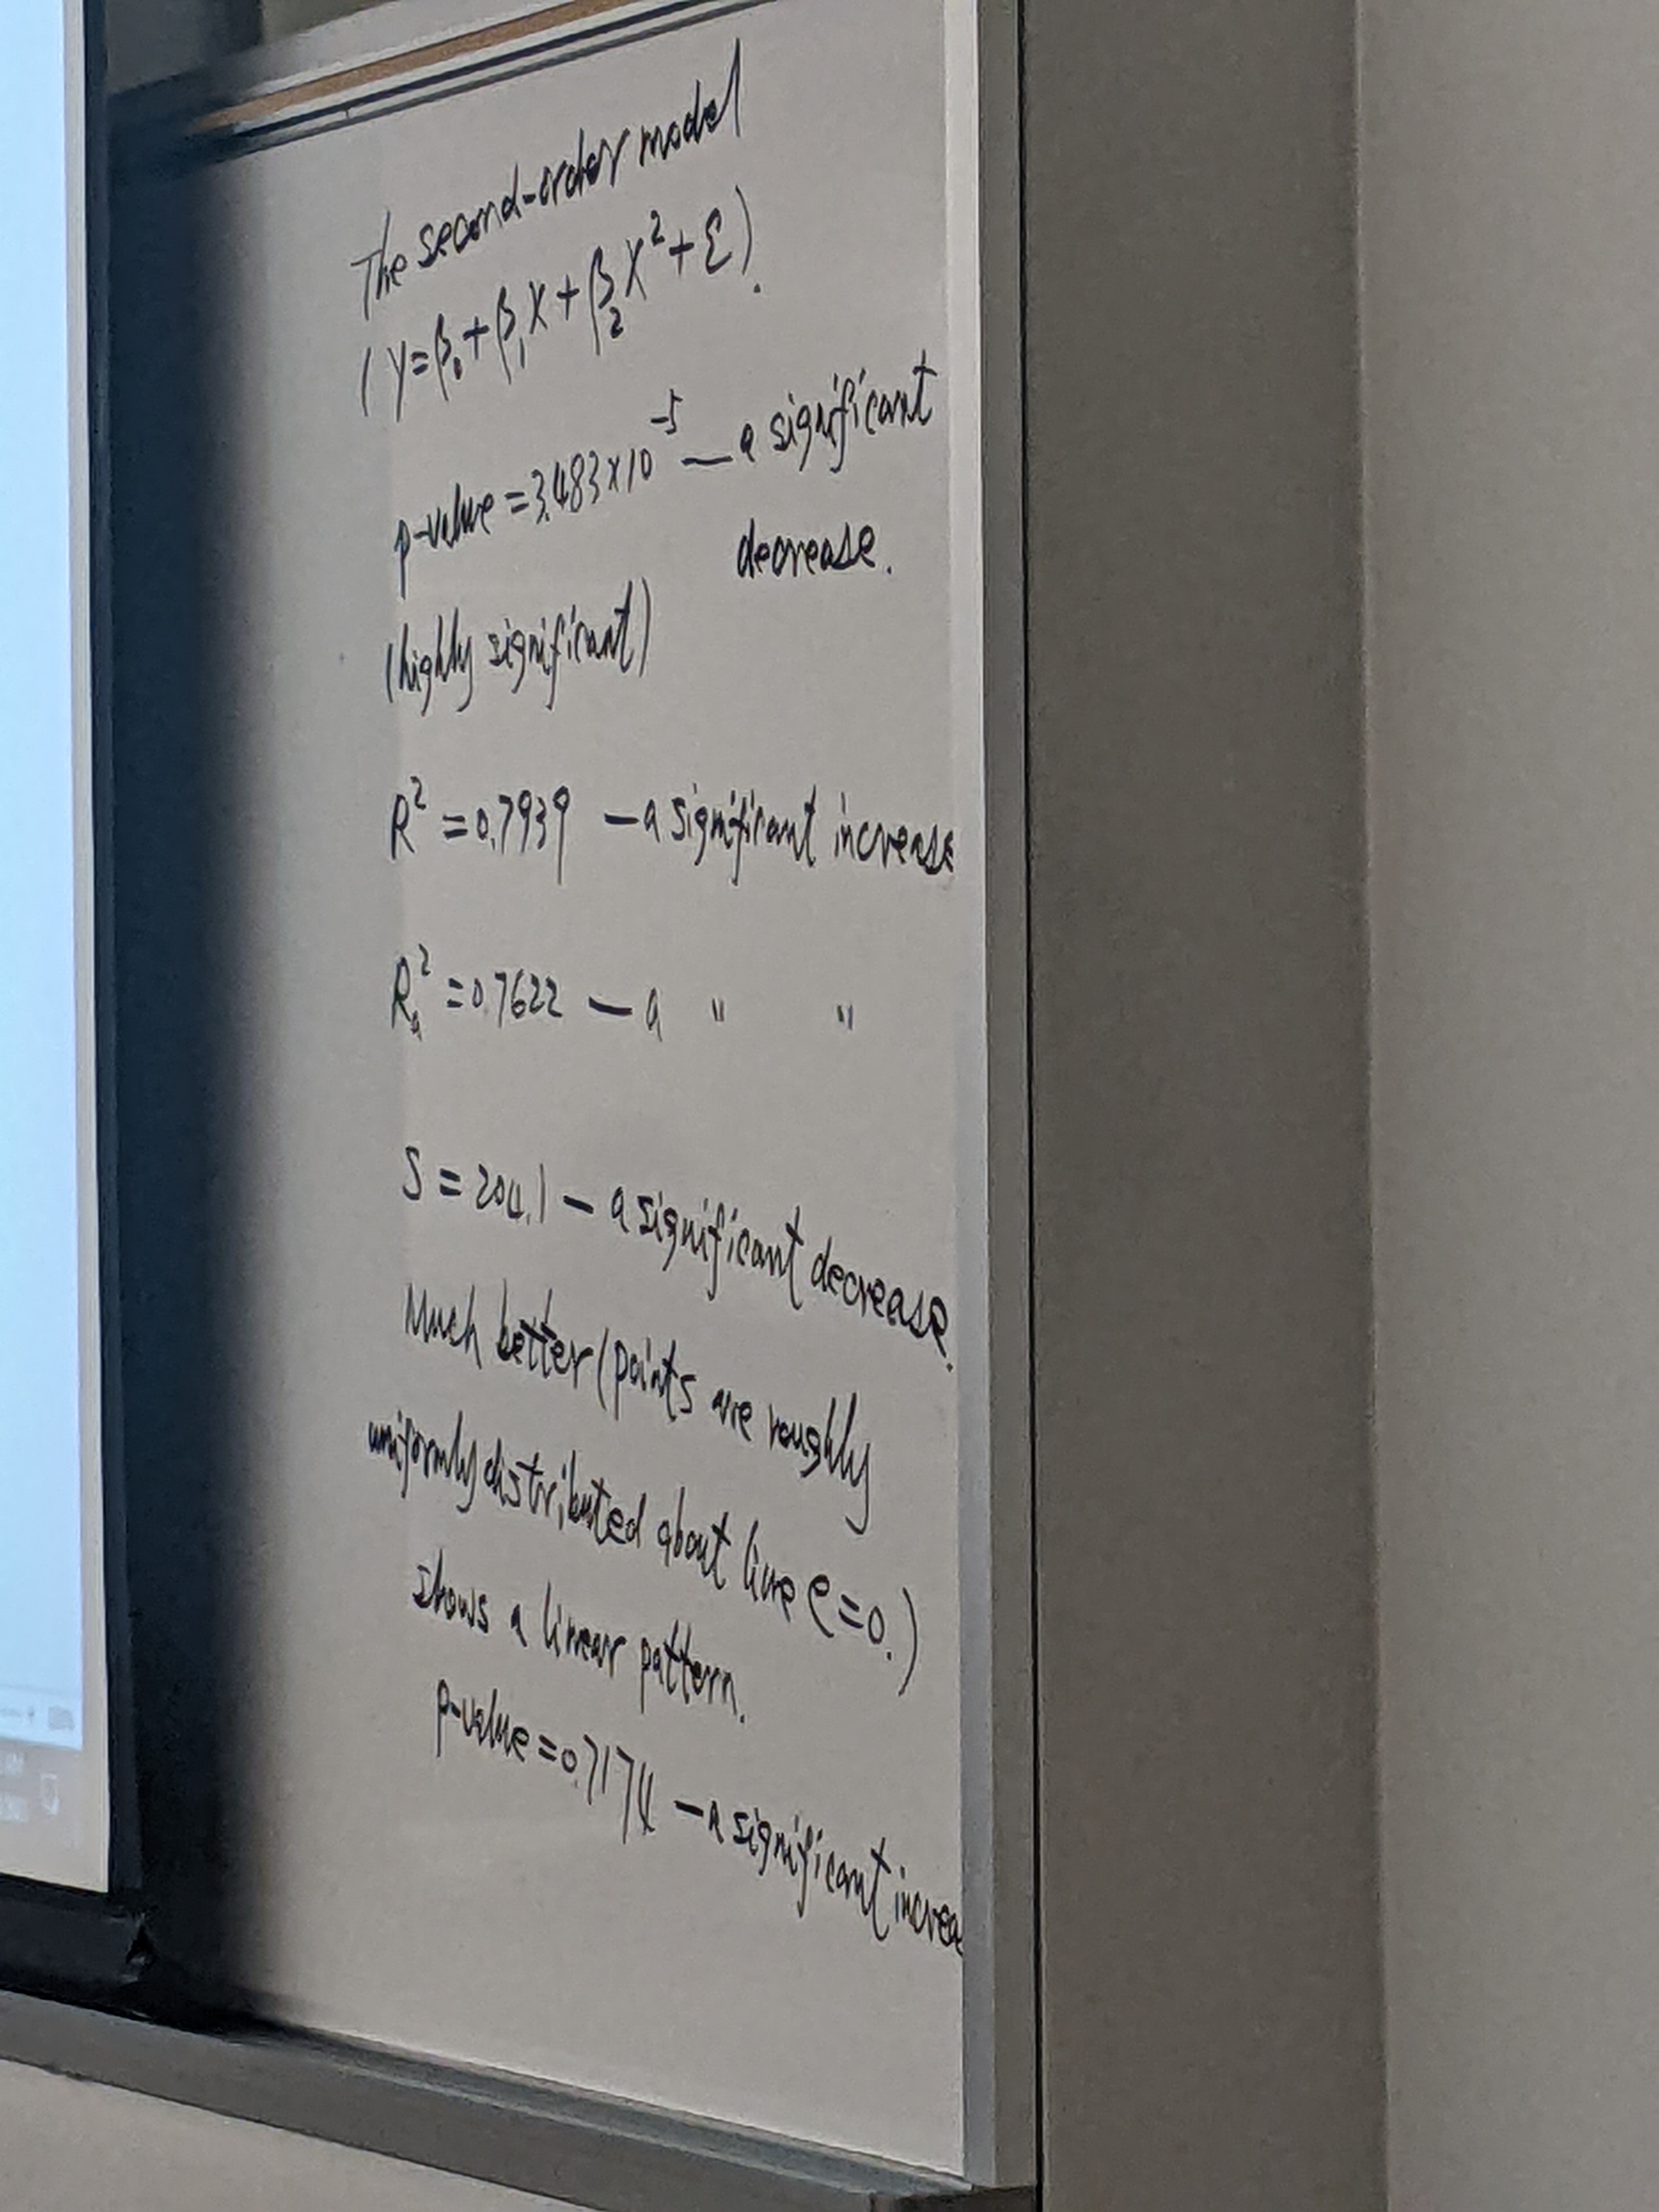 The second-order model
(Y=β₀+β₁X+β₂X²+ε).
p-value=3.483×10⁻⁵ — a significant
decrease.
(highly significant)
R²=0.7939 — a significant increase
Rₐ²=0.7622 — a " "
S=204.1 — a significant decrease.
Much better (points are roughly
uniformly distributed about line e=0.)
shows a linear pattern.
p-value=0.7174 — a significant increa